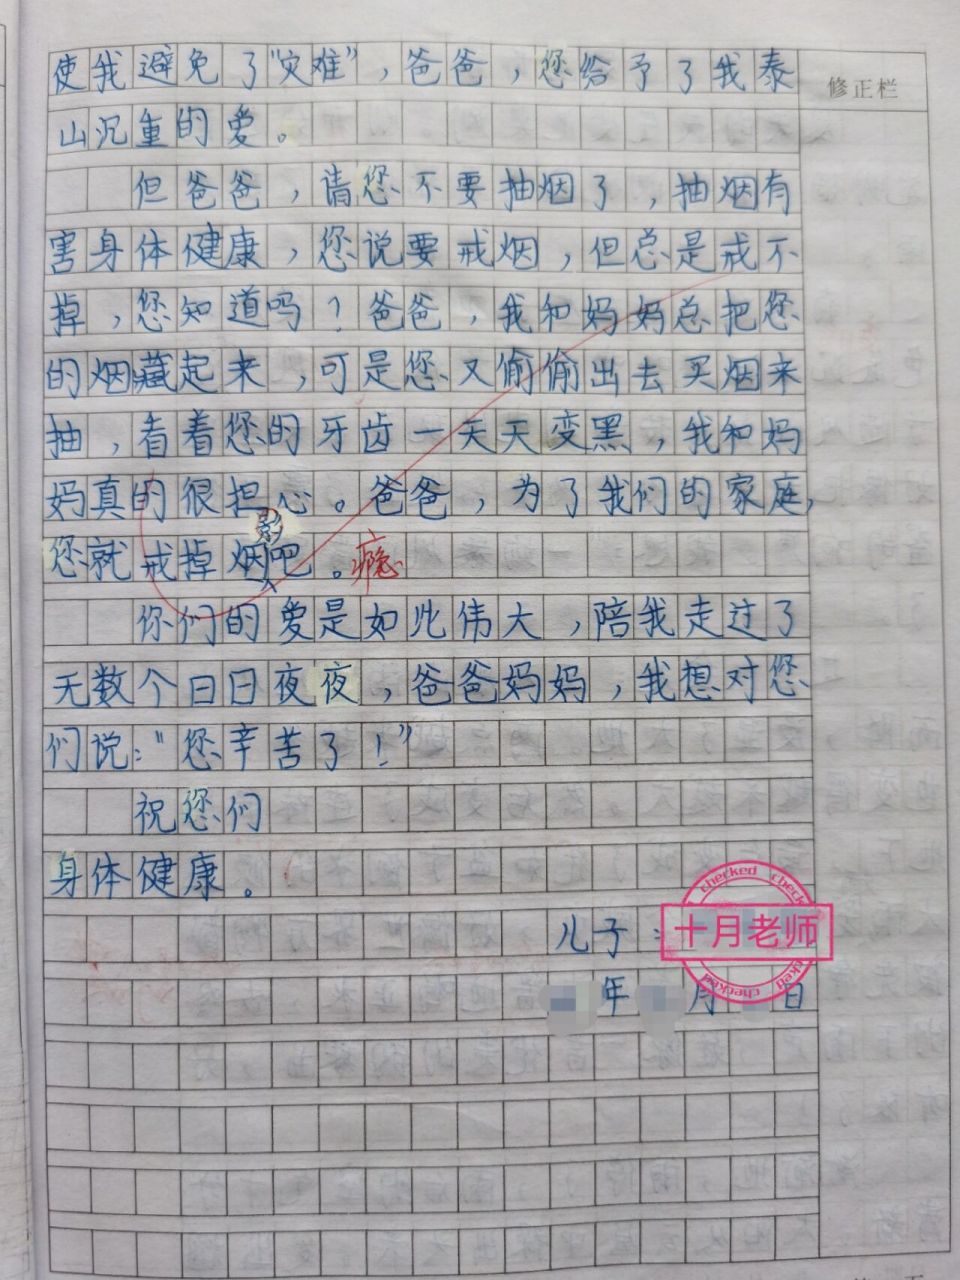 使我避免了“灾难”，爸爸，您给予了我泰
修正栏
山沉重的爱。
但爸爸，请您不要抽烟了，抽烟有
害身体健康，您说要戒烟，但总是戒不
掉，您知道吗？爸爸，我和妈妈总把您
的烟藏起来，可是您又偷偷出去买烟来
抽，看着您的牙齿一天天变黑，我和妈
妈真的很担心。爸爸，为了我们的家庭，
您就戒掉烟吧。瘾
你们的爱是如此伟大，陪我走过了
无数个日日夜夜，爸爸妈妈，我想对您
们说：“您辛苦了！”
祝您们
身体健康。
checked checked
儿子：
十月老师
checked
年 月 日